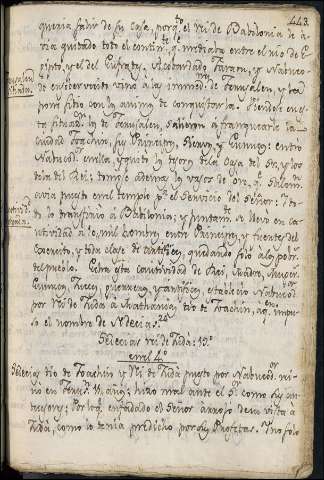 443.
queria salir de su casa, porq.e el rei de Babilonia le a-
via quitado todo el contin.te q. mediaba entre el rio de E-
gipto, y el del Eufrates. Acobardado Faraon, y Nabuco-
donosor vino a las inmed.s de Jerusalen, y la
puso sitio con la anim de conquistarla.
de Jerusalen, salieron á franquearle la
ciudad Joachin, su Madre, Siervos, y Eunucos: entro
Nabucod.or en ella, y quitó los tesoros de la Casa del Sr, y los
de la del Rei: tomose ademas los vasos de oro, q.e Salom.n
avia puesto en el templo p.a el servicio del Señor: To-
do lo transfirio a Babilonia; y juntam.te se llevó en ca-
tividad mil hombres, entre Principes, y fuertes del
exercito, y toda clase de artifices, quedando solo los pobres
del pueblo. Echa esta cautividad de Rei, Madre, Mugeres,
Eunucos, Jueces, y artifices, establecio Nabucod.or
por Rei de Juda a Mathanias, tio de Joachin, aq.n impu-
so el nombre de Sedecias.
Sedecias rei de Juda: 19.o
cap.l 4.o
Sedecias tio de Joachin y Rei de Juda puesto por Nabucod.or rei-
nó en Jerus.n 11 años; hizo mal ante el S.r como sus an-
tecesores; Por lo q.e enfadado el Señor arrojó de su vista a
Juda, como lo tenia predicho por sus Profetas. Y no solo